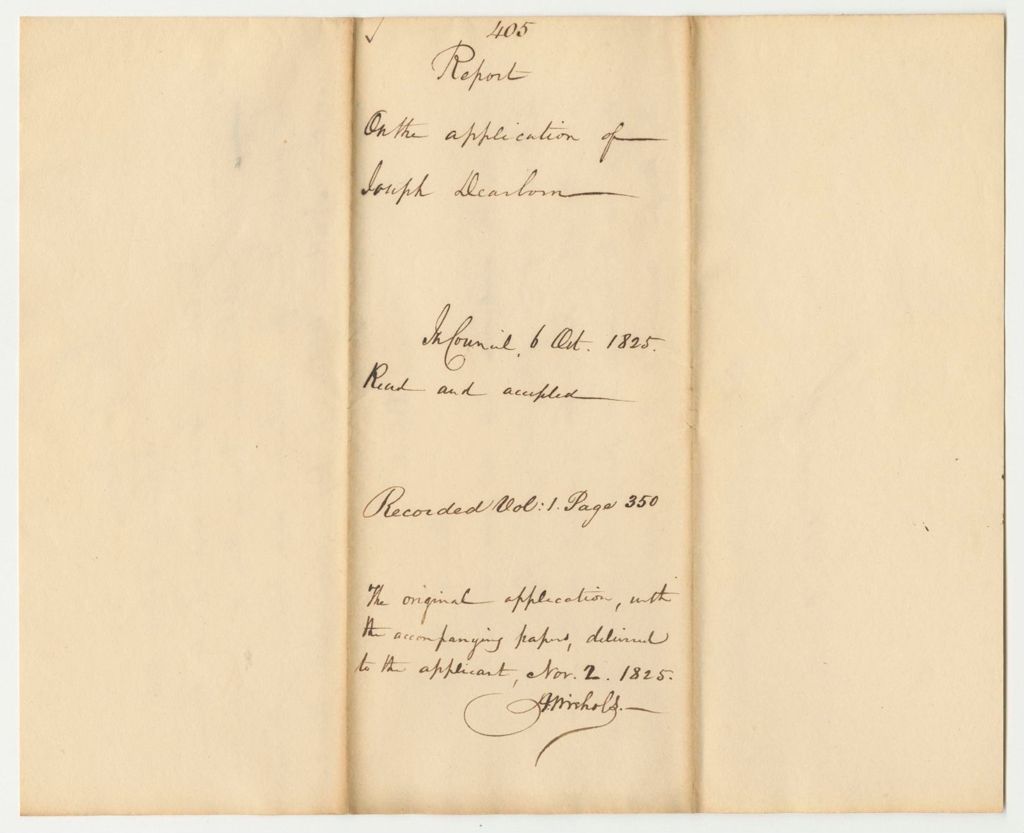 405
Report
On the application of
Joseph Dearborn
In Council, 6 Oct. 1825.
Read and accepted
Recorded Vol: 1. Page 350
The original application, with
the accompanying papers, delivered
to the applicant, Nov. 2. 1825.
A. Nichols.